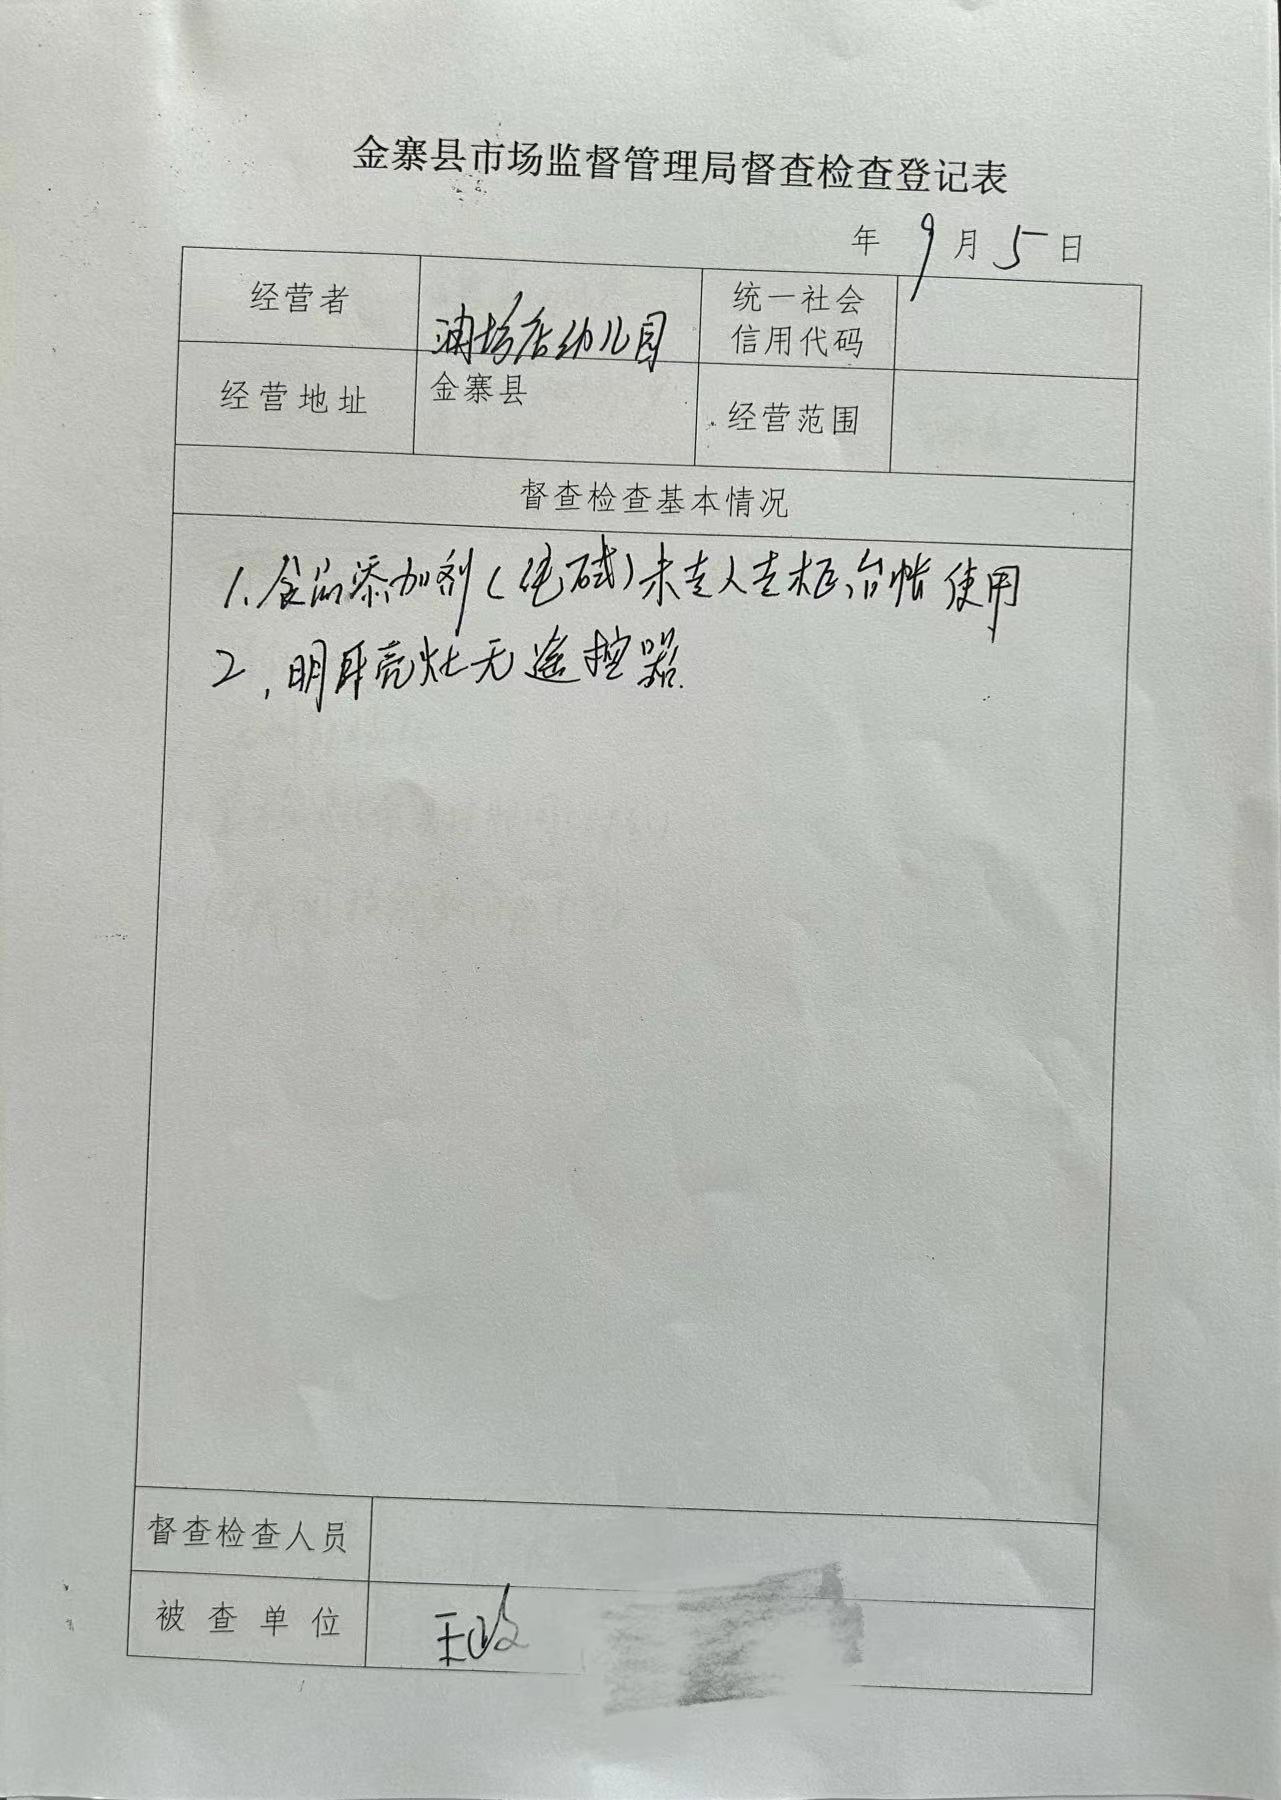 金寨县市场监督管理局督查检查登记表
年 9 月 5 日
经营者
店幼儿园
统一社会
信用代码
经营地址
金寨县
经营范围
督查检查基本情况
1、食品添加剂(纯碱)未专人专柜、台帐使用
2、明厨亮灶无遥控器.
督查检查人员
被查单位
王